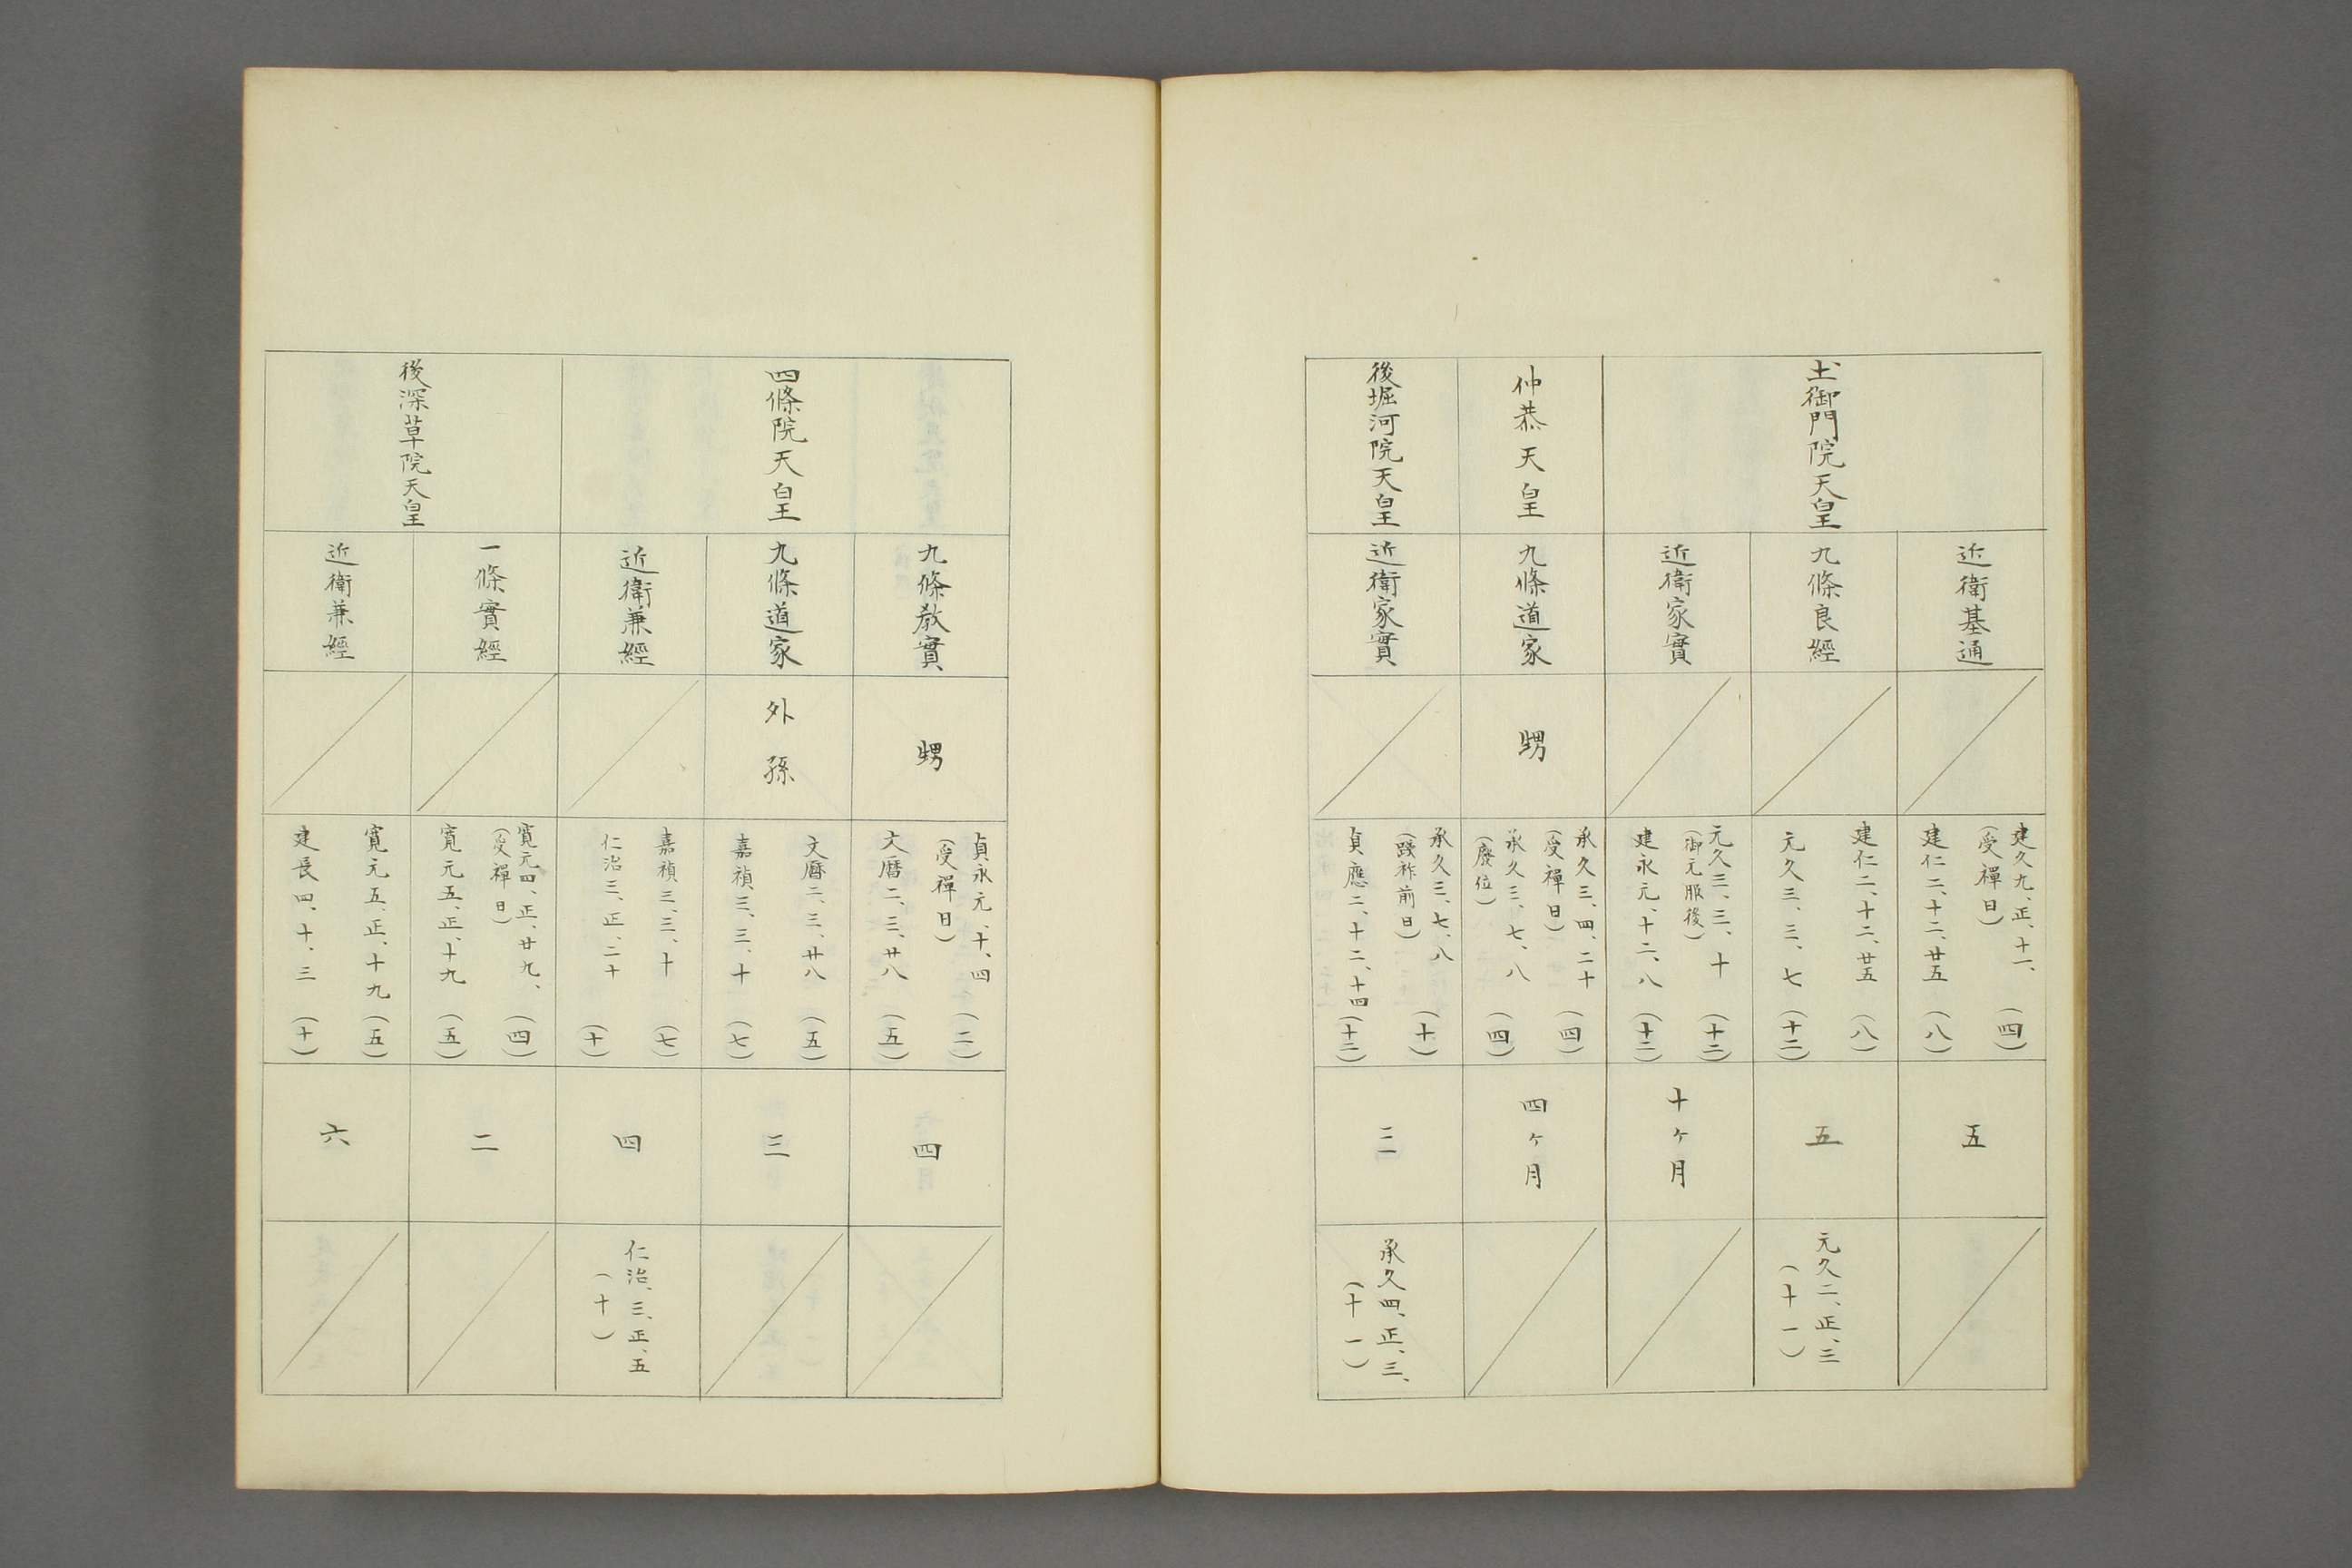 土御門院天皇
近衛基通
建久九、正、十一、(四)
(受禪日)
建仁二、十二、廿五(八)
五
九條良經
建仁二、十二、廿五(八)
元久三、三、七(十二)
五
元久二、正、三
(十一)
近衛家實
元久三、三、十(十二)
(御元服後)
建永元、十二、八(十二)
十ヶ月
仲恭天皇
九條道家
甥
承久三、四、二十(四)
(受禪日)
承久三、七、八(四)
(廢位)
四ヶ月
後堀河院天皇
近衛家實
承久三、七、八(十)
(踐祚前日)
貞應二、十二、十四(十二)
三
承久四、正、三、
(十一)
四條院天皇
九條敎實
甥
貞永元、十、四(二)
(受禪日)
文曆二、三、廿八(五)
四
九條道家
外孫
文曆二、三、廿八(五)
嘉禎三、三、十(七)
三
近衛兼經
嘉禎三、三、十(七)
仁治三、正、二十(十)
四
仁治、三、正、五
(十)
後深草院天皇
一條實經
寬元四、正、廿九、(四)
(受禪日)
寬元五、正、十九(五)
二
近衛兼經
寬元五、正、十九(五)
建長四、十、三(十)
六